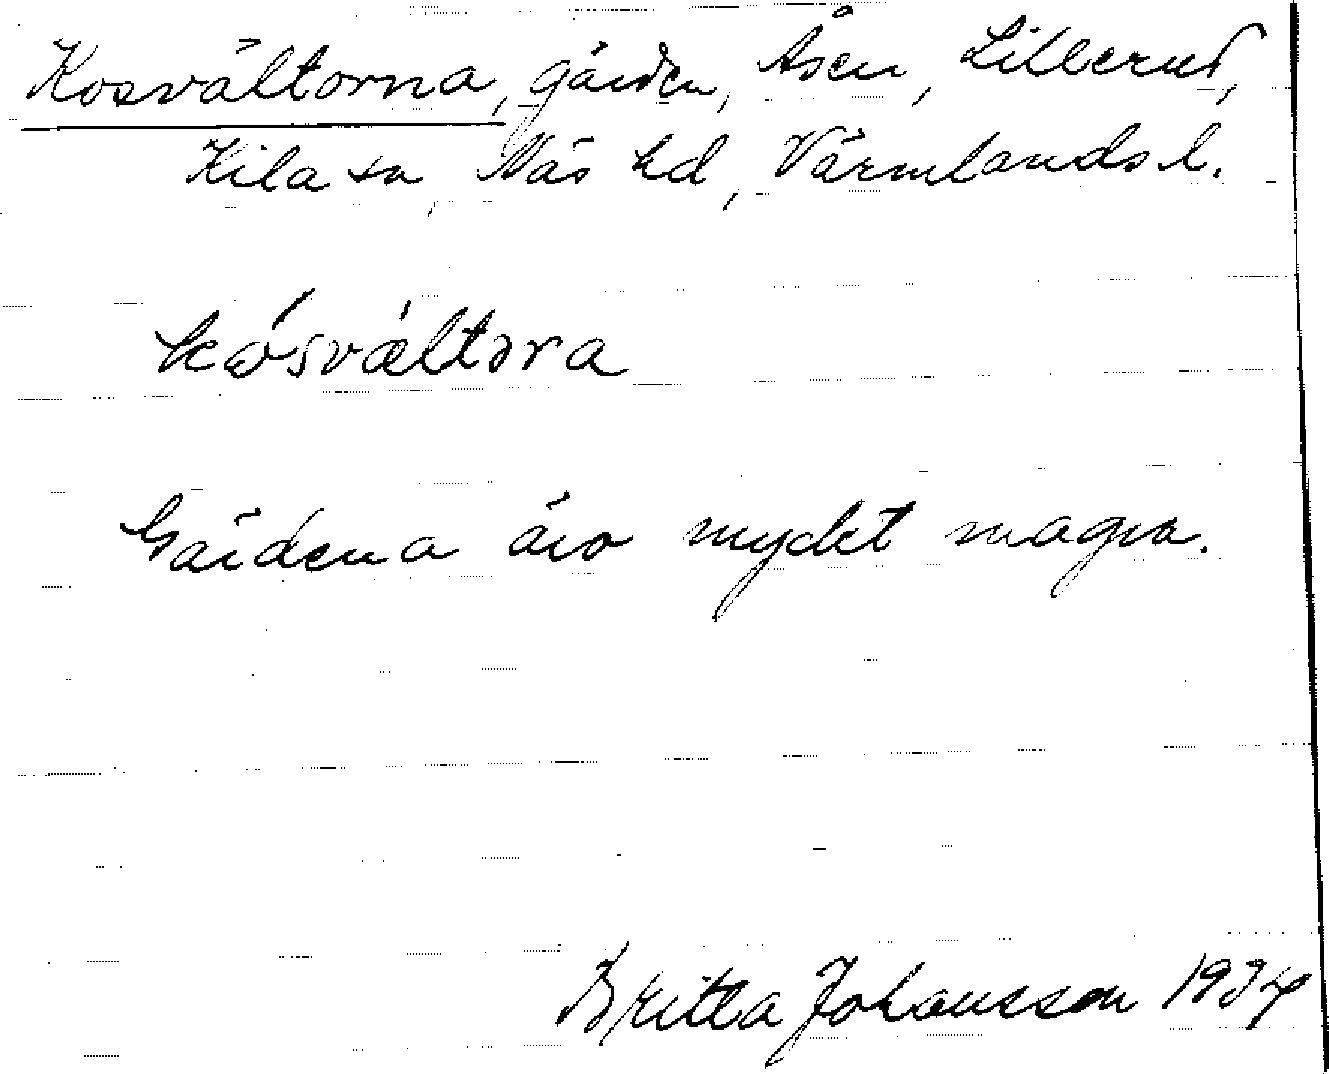 Kosvältorna, gärden, Åsen, Lillerud,
Kila sn, Näs hd, Värmlands l.
kɷ́svæ̀ltɔra
Gärdena äro mycket magra.
Britta Johansson 1934